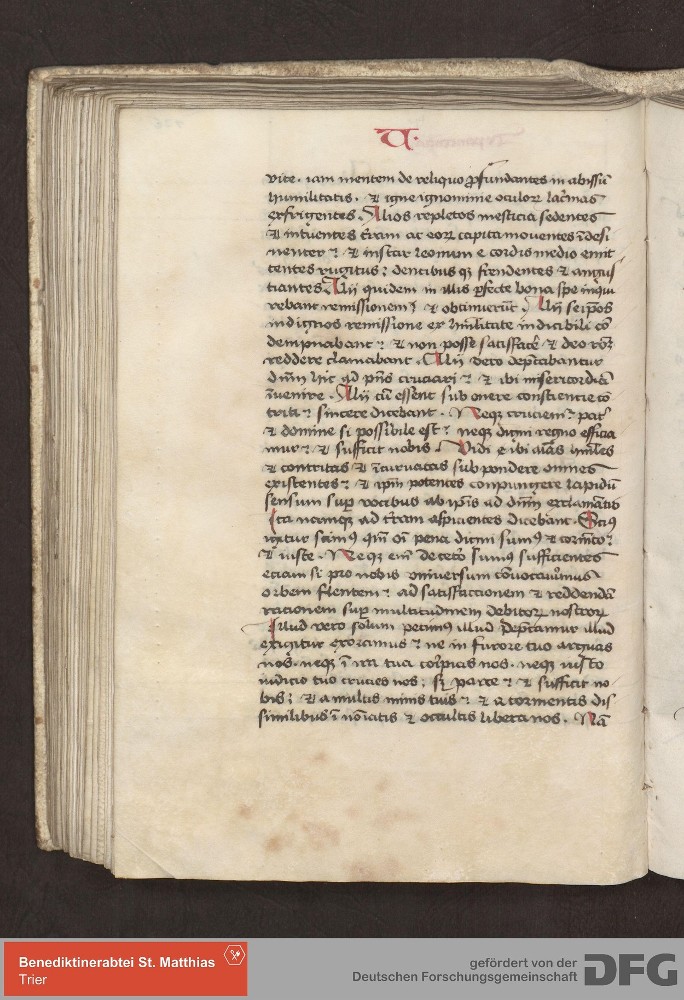 V.
vite . iam mentem de reliquo ꝓfundantes in abissū
humilitatis . ⁊ igne ignominie oculoꝝ lac̄mas
exfrigentes . Alios repletos mesticia sedentes
⁊ intuentes t̄ram ac eoꝝ capita mouentes īdesi
nenter : ⁊ instar leonum e cordis medio emit
tentes rugitus : dentibus qꝫ frendentes ⁊ angus
tiantes . Alij quidem in illis ꝑfecte bona spe inqui
rebant remissionem : ⁊ obtinuerūt . Alij seip̄os
indignos remissione ex hūilitate indicibili cō
dempnabant : ⁊ non posse satisfac̄e ⁊ deo rōꝫ
reddere clamabant . Alij vero dep̄cabantur
dn̄m hic ad p̄ns cruciari : ⁊ ibi misericordiā
īuenire . Alij cū essent sub onere conscientie cō
triti : sincere dicebant . Neqꝫ cruciem̄ : pat̄
⁊ domine si possibile est : neqꝫ digni regno efficia
mur : ⁊ sufficit nobis . Vidi ⁊ ibi aīas hūiles
⁊ contritas ⁊ īcuruatas sub pondere omnes
existentes : ⁊ ip̄m potentes compungere lapidū
sensum suꝑ vocibus ab ip̄is ad dn̄m exclamatis
Ita namqꝫ ad t̄ram aspicientes dicebant . Scimꝰ
igitur scimꝰ qm̄ oī pena digni sumꝰ ⁊ torm̄to :
⁊ iuste . Neqꝫ em̄ de cet̄o sumꝰ sufficientes
eciam si pro nobis vniuersum cōuocauīmus
orbem flentem : ad satisfactionem ⁊ reddendā
racionem suꝑ multitudinem debitoꝝ nostroꝝ
Illud vero solum petimꝰ illud dep̄camur illud
exigitur exoramus : ne in furore tuo arguas
nos . neqꝫ ī ira tua corripias nos . neqꝫ iusto
iudicio tuo crucies nos ; sꝫ parce : ⁊ sufficit no
bis : ⁊ a multis minis tuis : ⁊ a tormentis dis
similibus ī noīatis ⁊ occultis libera nos . Nā
Benediktinerabtei St. Matthias
Trier
gefördert von der
Deutschen Forschungsgemeinschaft
DFG